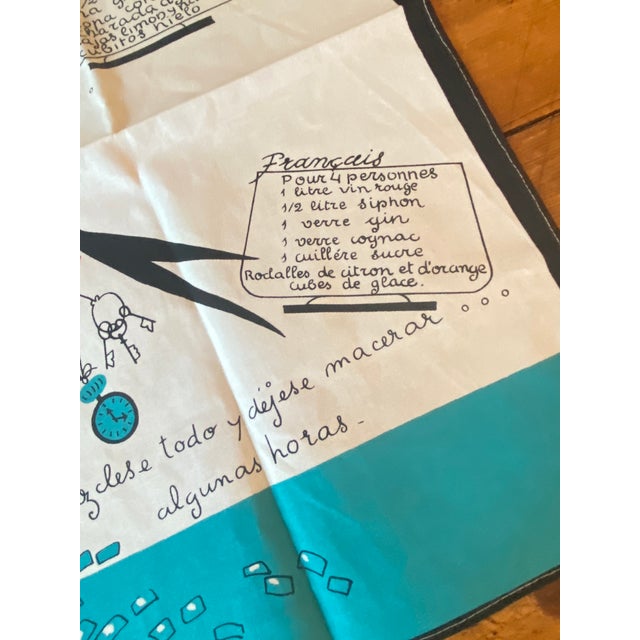 limón y
cubitos hielo
Français
Pour 4 personnes
1 litre vin rouge
1/2 litre siphon
1 verre gin
1 verre cognac
1 cuillére sucre
Roclalles de citron et d'orange
cubes de glace.
clese todo y déjese macerar...
algunas horas.